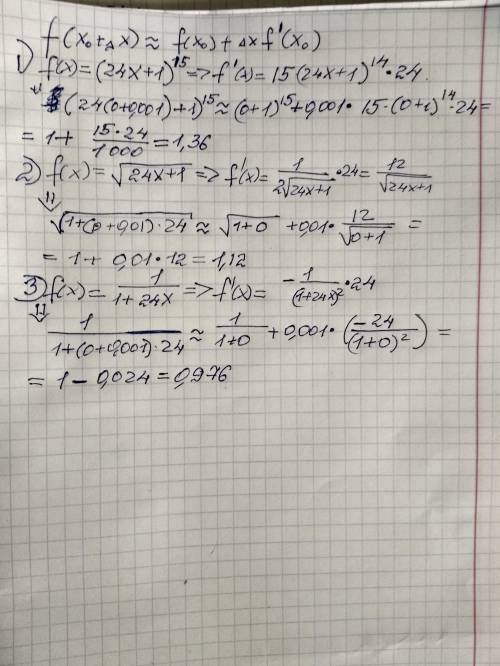 f(x₀+Δx)≈ f(x₀)+Δxf'(x₀)
1) f(x)=(24x+1)¹⁵=>f'(x)=15(24x+1)¹⁴·24.
⇓ (24(0+0,001)+1)¹⁵≈(0+1)¹⁵+0,001·15·(0+1)¹⁴·24=
= 1+ 15·24/1000 = 1,36
2) f(x)=√(24x+1) => f'(x)= 1/(2√(24x+1)) ·24= 12/√(24x+1)
⇓
√(1+(0+0,01)·24) ≈ √(1+0) +0,01· 12/√(0+1) =
= 1+ 0,01·12 = 1,12
3) f(x)= 1/(1+24x) => f'(x)= -1/(1+24x)² ·24
⇓
1/(1+(0+0,001)·24) ≈ 1/(1+0) +0,001·(-24/(1+0)²) =
= 1-0,024=0,976